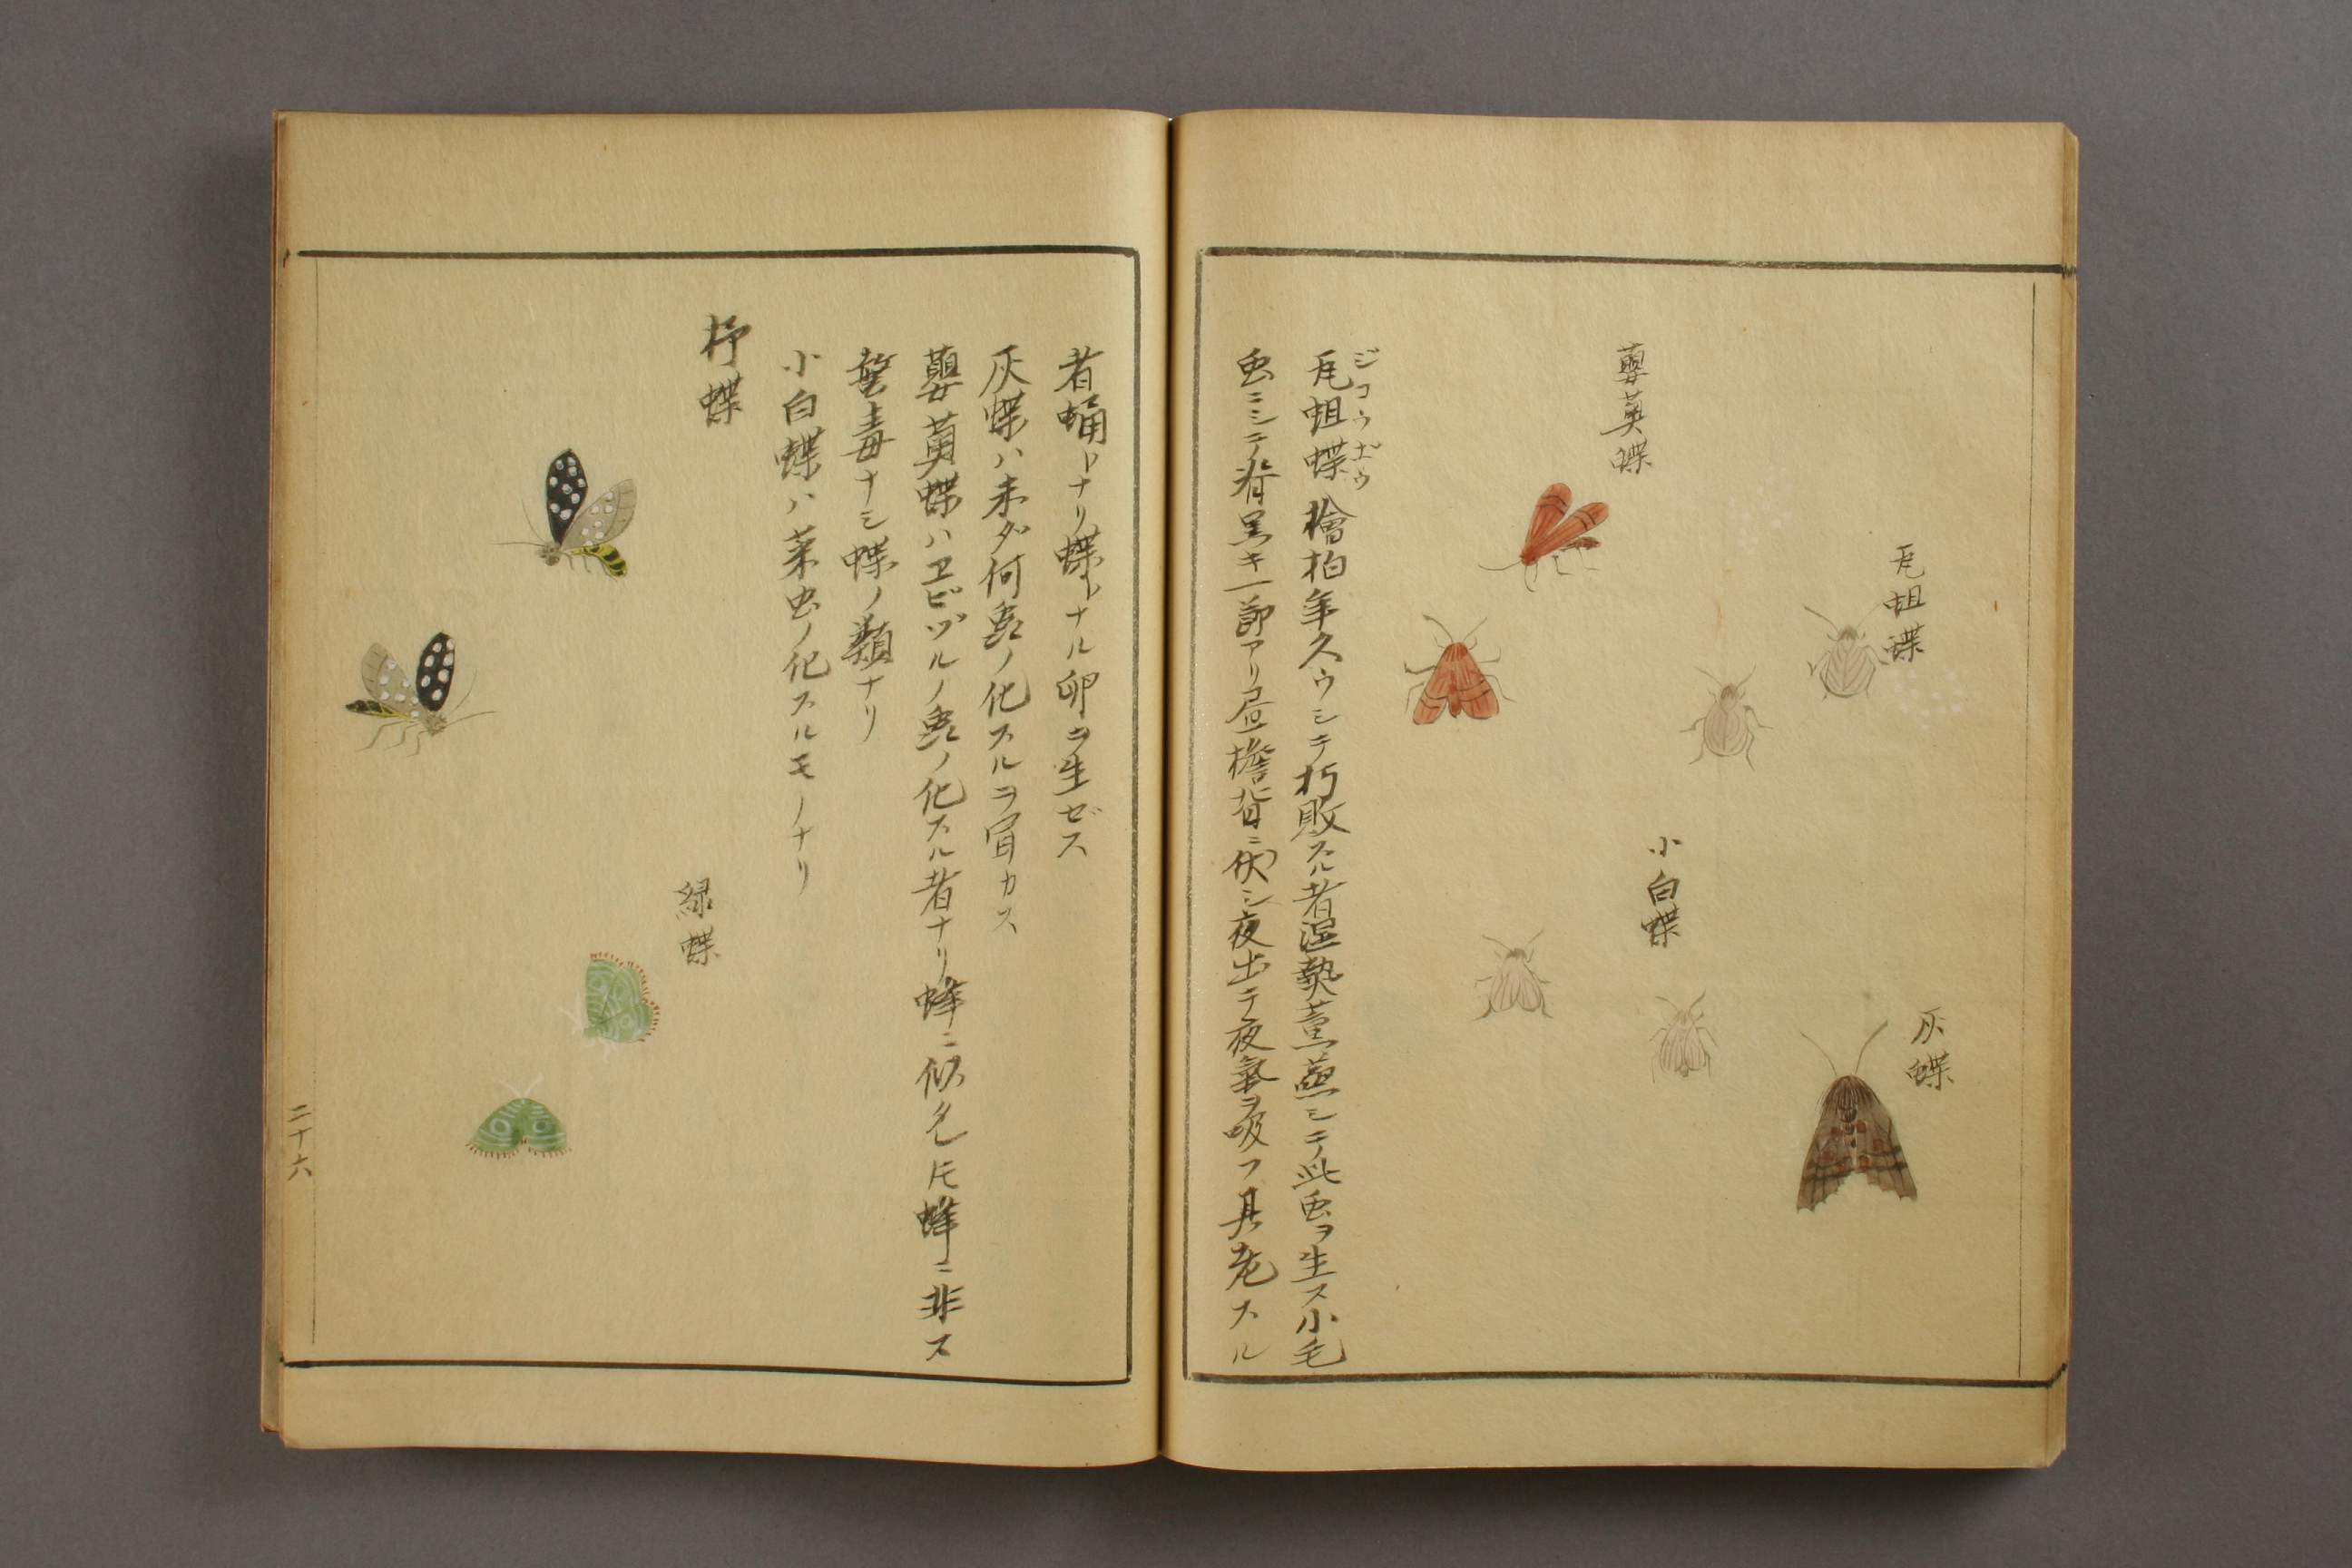 蘡薁蝶
蛆蝶
小白蝶
灰蝶
ジコウボウ
蛆蝶檜柏年久ウシテ朽敗スル者湿熱薫蒸シテ此虫ヲ生ス小毛
虫ニシテ背黒キ一節アリ昼檐背ニ伏シ夜出テ夜氣ヲ吸フ其老スル
者蛹トナリ蝶トナル卵ヲ生ゼス
灰蝶ハ未ダ何虫ノ化スルヲ冐カス
蘡薁蝶ハヱビヅルノ虫ノ化スル者ナリ蜂ニ似タレ𪜈蜂ニ非ス
螫毒ナシ蝶ノ類ナリ
小白蝶ハ菜虫ノ化スルモノナリ
杼蝶
緑蝶
二十六